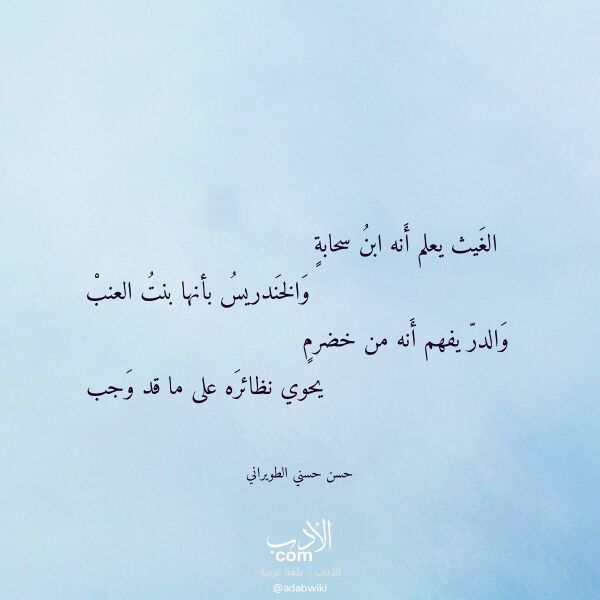 الغَيث يعلم أَنه ابنُ سحابةٍ
وَالخَندريسُ بأنها بنتُ العنبْ
وَالدرّ يفهم أَنه من خضرمٍ
يحوي نظائرَه على ما قد وَجب
حسن حسني الطويراني
الأدب
com
الأدب .. بلغة عربية
@adabwiki